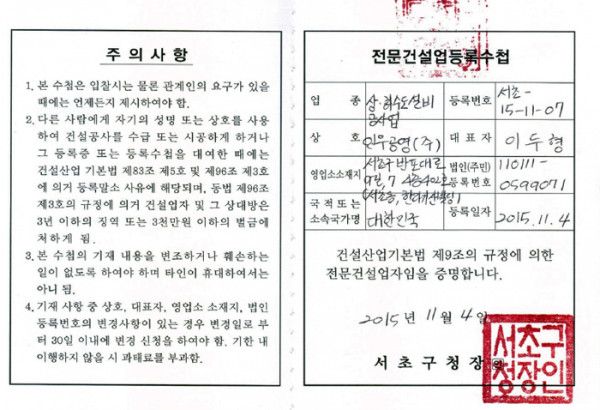 주 의 사 항
1. 본 수첩은 입찰시는 물론 관계인의 요구가 있을
때에는 언제든지 제시하여야 함.
2. 다른 사람에게 자기의 성명 또는 상호를 사용
하여 건설공사를 수급 또는 시공하게 하거나
그 등록증 또는 등록수첩을 대여한 때에는
건설산업 기본법 제83조 제5호 및 제96조 제3호
에 의거 등록말소 사유에 해당되며, 동법 제96조
제3호의 규정에 의거 건설업자 및 그 상대방은
3년 이하의 징역 또는 3천만원 이하의 벌금에
처하게 됨.
3. 본 수첩의 기재 내용을 변조하거나 훼손하는
일이 없도록 하여야 하며 타인이 휴대하여서는
아니 됨.
4. 기재 사항 중 상호, 대표자, 영업소 소재지, 법인
등록번호의 변경사항이 있는 경우 변경일로 부
터 30일 이내에 변경 신청을 하여야 함. 기한 내
이행하지 않을 시 과태료를 부과함.
전문건설업등록수첩
업 종 상·하수도설비공사업 등록번호 서초-15-11-07
상 호 인우공영(주) 대 표 자 이 두 형
영업소소재지 서초구 반포대로 법인(주민)등록번호 110111-0599071
국 적 또 는 소속국가명 대한민국 등록일자 2015.11.4
건설산업기본법 제9조의 규정에 의한
전문건설업자임을 증명합니다.
2015년 11월 4일
서 초 구 청 장 인
서초구
청장인